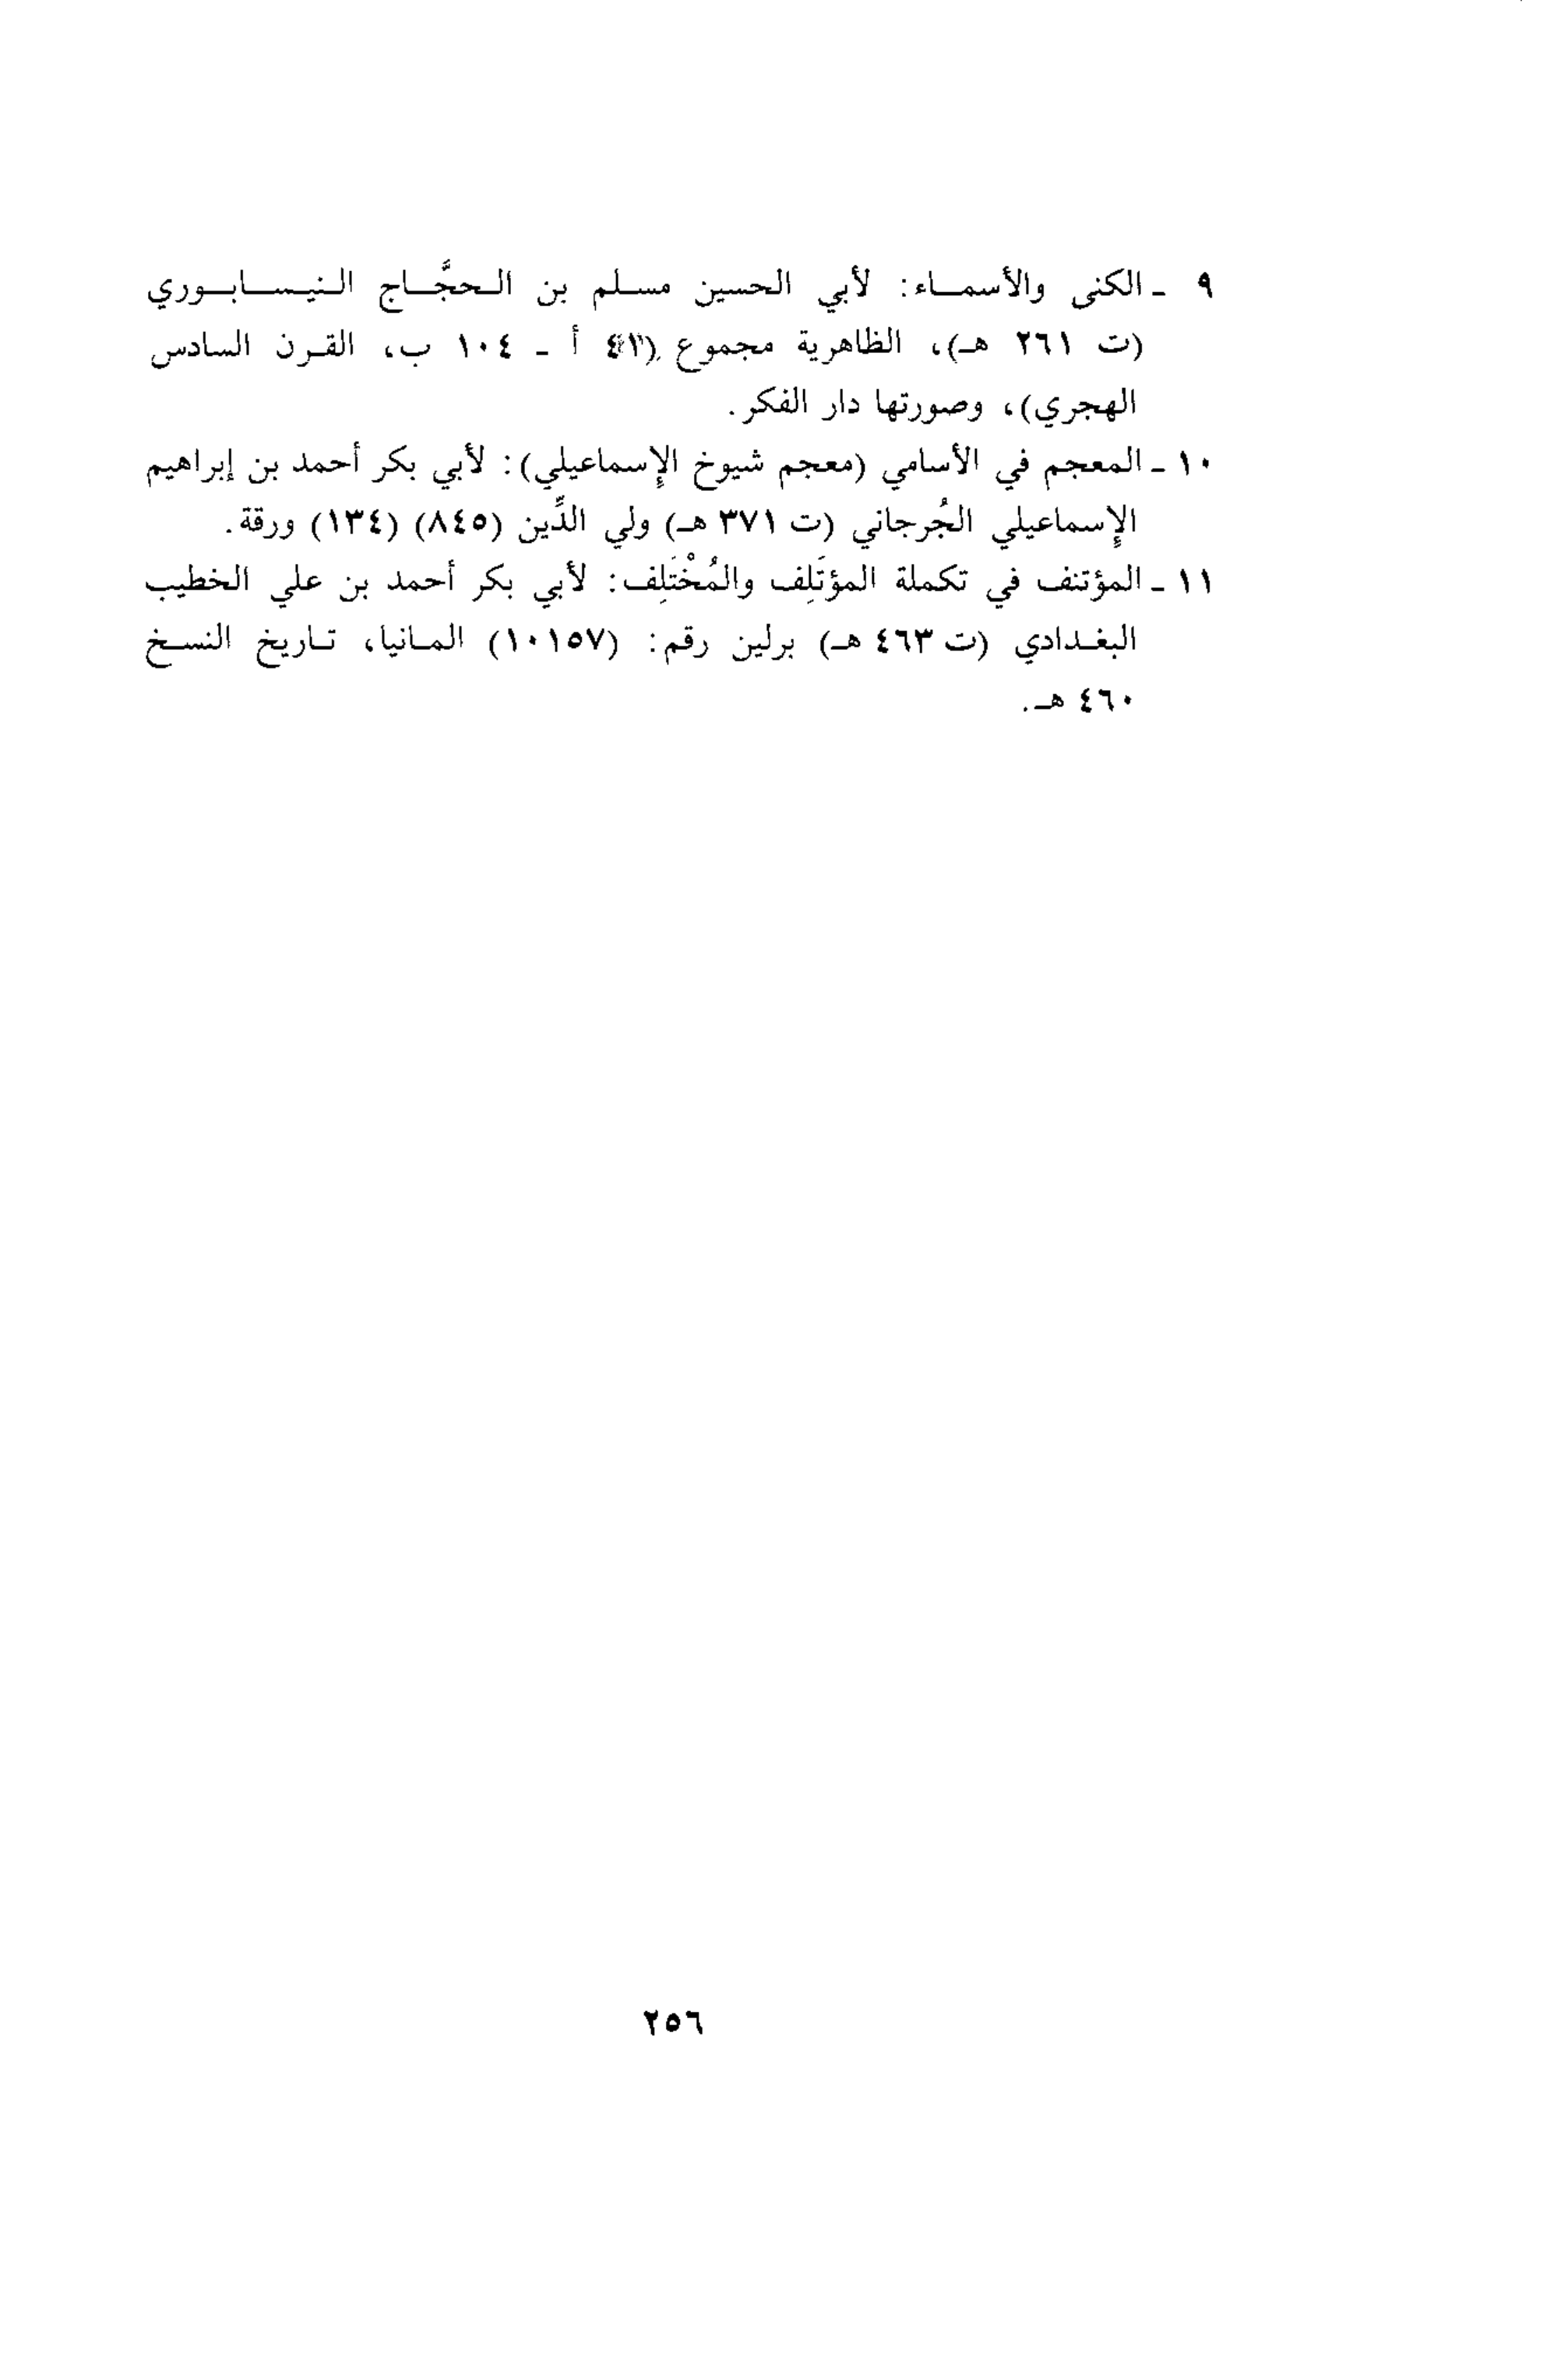 ٩ - الكنى والأسماء: لأبي الحسين مسلم بن الحجَّاج النيسابوري
(ت ٢٦١ هـ)، الظاهرية مجموع أ - ١٠٤ ب، القرن السادس
الهجري)، وصورتها دار الفكر.
١٠ - المعجم في الأسامي (معجم شيوخ الإسماعيلي): لأبي بكر أحمد بن إبراهيم
الإسماعيلي الجُرجاني (ت ٣٧١ هـ) ولي الدِّين (٨٤٥) (١٣٤) ورقة.
١١ - المؤتنف في تكملة المؤتَلِف والمُخْتَلِف: لأبي بكر أحمد بن علي الخطيب
البغدادي (ت ٤٦٣ هـ) برلين رقم: (١٠١٥٧) المانيا، تاريخ النسخ
٤٦٠ هـ.
٢٥٦